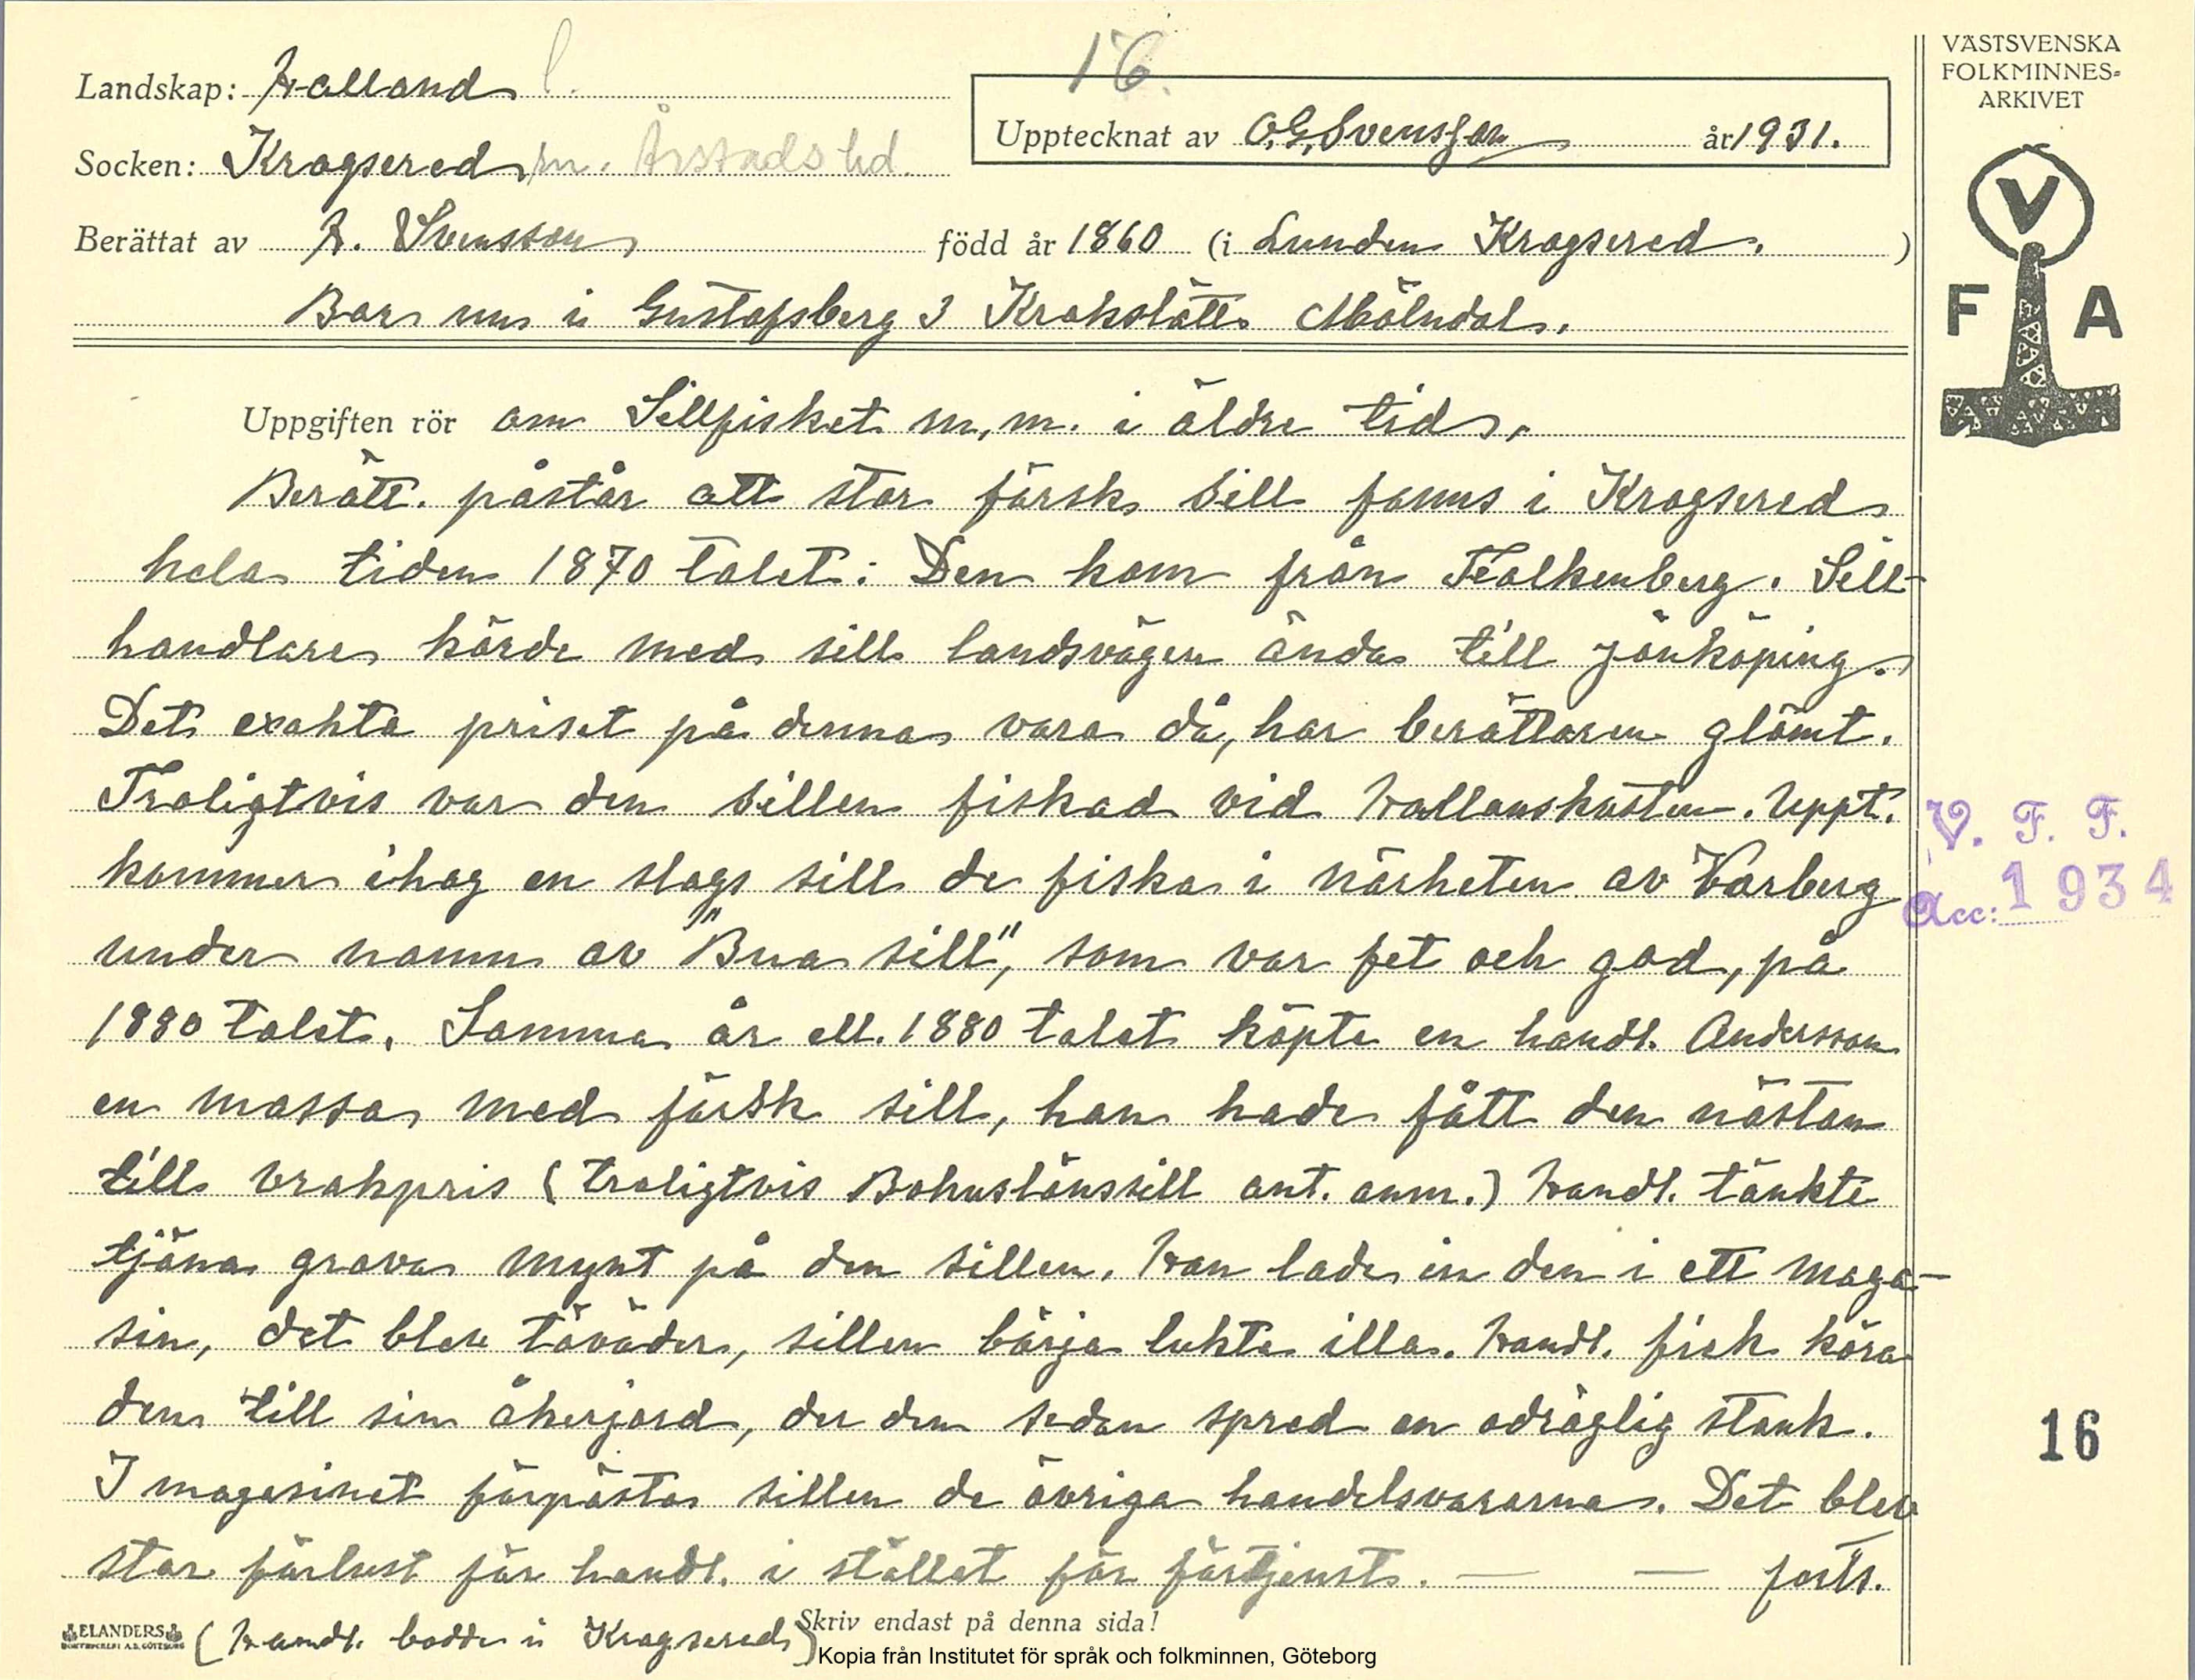 16.
VÄSTSVENSKA
FOLKMINNES-
ARKIVET
Landskap: Halland
Upptecknat av O.G. Svensson år 1931.
Socken: Krogsered m. Årstads hd.
Berättat av A. Svensson född år 1860 (i Lunden Krogsered. )
Bor nu i Gustafsberg 3 Krokslätt Mölndal.
V
F A
Uppgiften rör om Sillfisket m.m. i äldre tid.
Berätt. påstår att stor färsk sill fanns i Krogsered
hela tiden 1870 talet. Den kom från Falkenberg. Sill-
handlare körde med sill landsvägen ända till Jönköping.
Det exakta priset på denna vara då, har berättaren glömt.
Troligtvis var den sillen fiskad vid Hallanskusten. Uppt.
kommer ihog en slags sill de fiska i närheten av Varberg
under namn av "Bua sill", som var fet och god, på
1880 talet. Samma år ell. 1880 talet köpte en handl. Andersson
en massa med färsk sill, han hade fått den nästan
till vrakpris (troligtvis Bohuslänssill ant. anm.) Handl. tänkte
tjäna grova mynt på den sillen. Han lade in den i ett maga-
sin, det blev töväder, sillen börja lukta illa. Handl. fick köra
den till sin åkerjord, der den sedan spred en odräglig stank.
I magasinet förpästa sillen de övriga handelsvarorna. Det blev
stor förlust för handl. i stället för förtjenst. — — forts.
(Handl. bodde i Krogsered)
V. F. F.
Acc: 1934
16
ELANDERS
BOKTRYCKERI A.B. GÖTEBORG
Skriv endast på denna sida!
Kopia från Institutet för språk och folkminnen, Göteborg